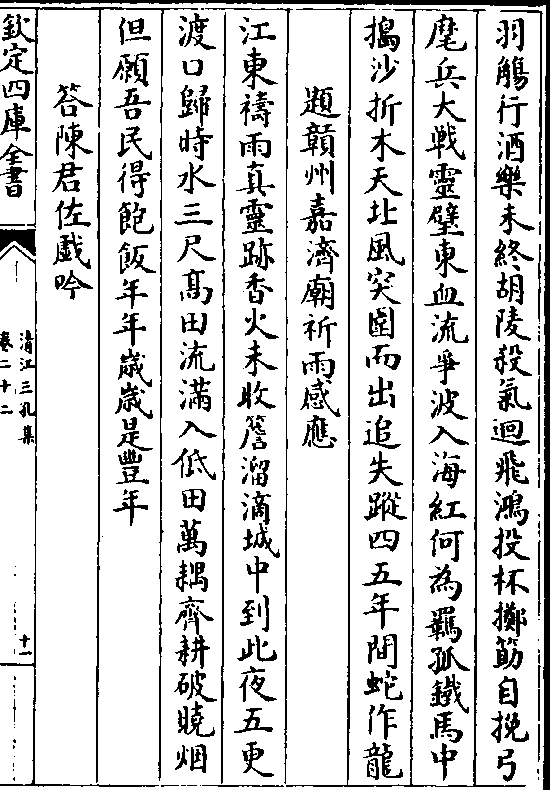 羽觴行酒樂未終胡陵殺氣迴飛鴻投杯擲筯自挽弓
麾兵大戰靈壁東血流爭波入海紅何為羈孤鐵馬中
搗沙折木天北風突圍而出追失蹤四五年間蛇作龍
題贛州嘉濟廟祈雨感應
江東禱雨真靈跡香火未收簷溜滴城中到此夜五更
渡口歸時水三尺髙田流滿入低田萬耦齊耕破曉烟
但願吾民得飽飯年年歲歲是豐年
答陳君佐戲吟
欽定四庫全書
清江三孔集
卷二十二
十一